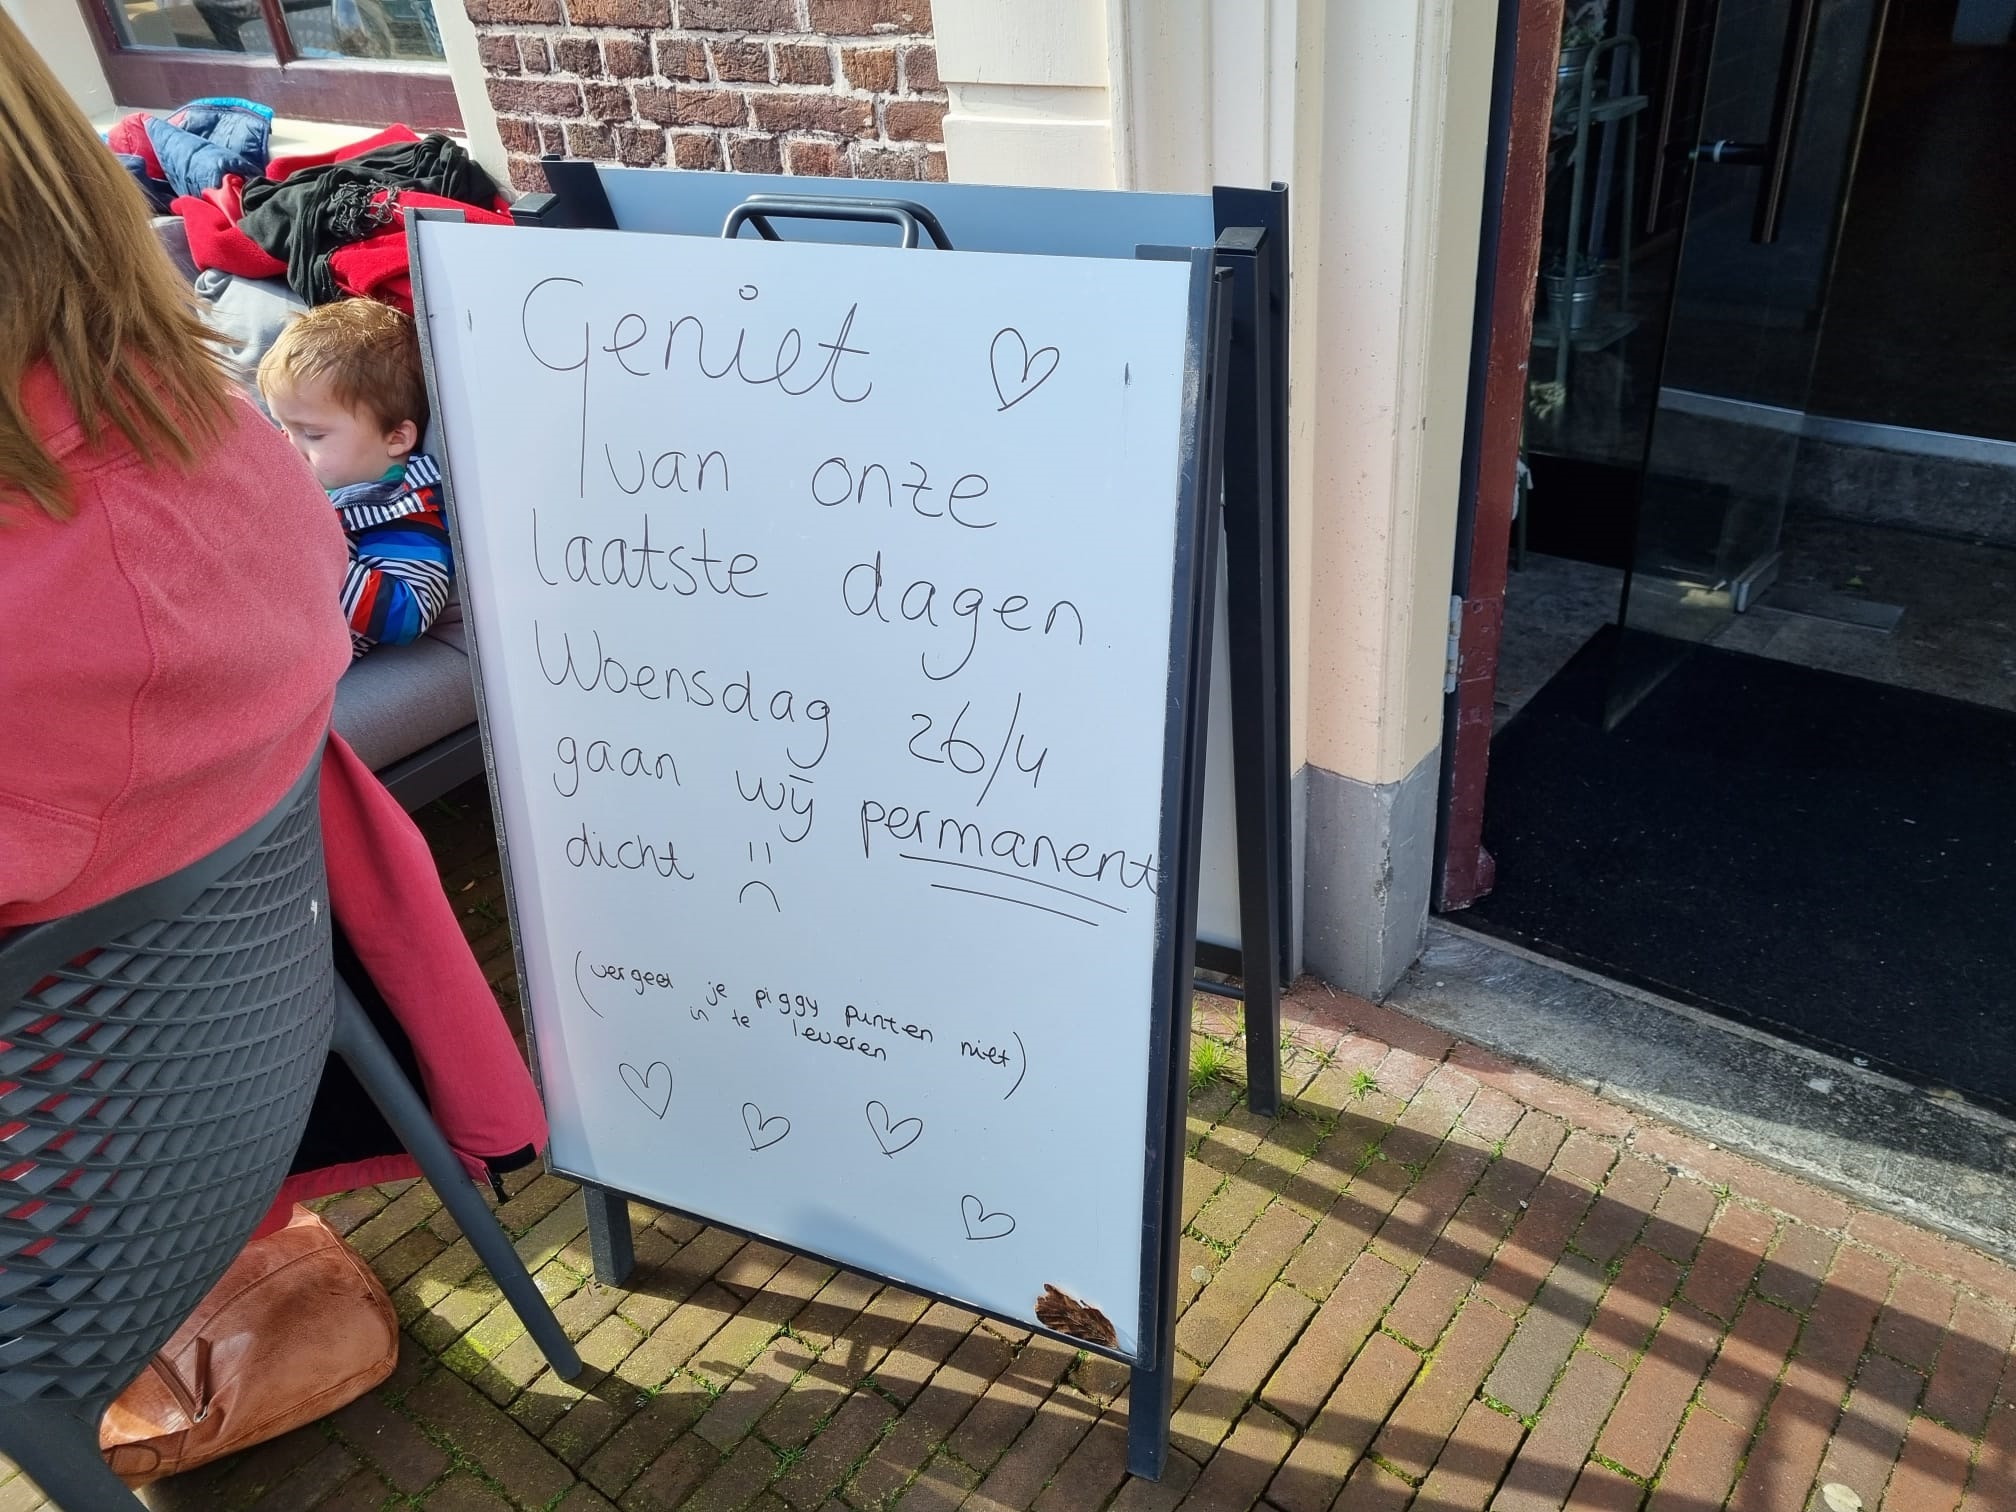 Geniet
van onze
laatste dagen.
Woensdag 26/4
gaan wij permanent
dicht :(
(vergeet je piggy punten niet)
in te leveren